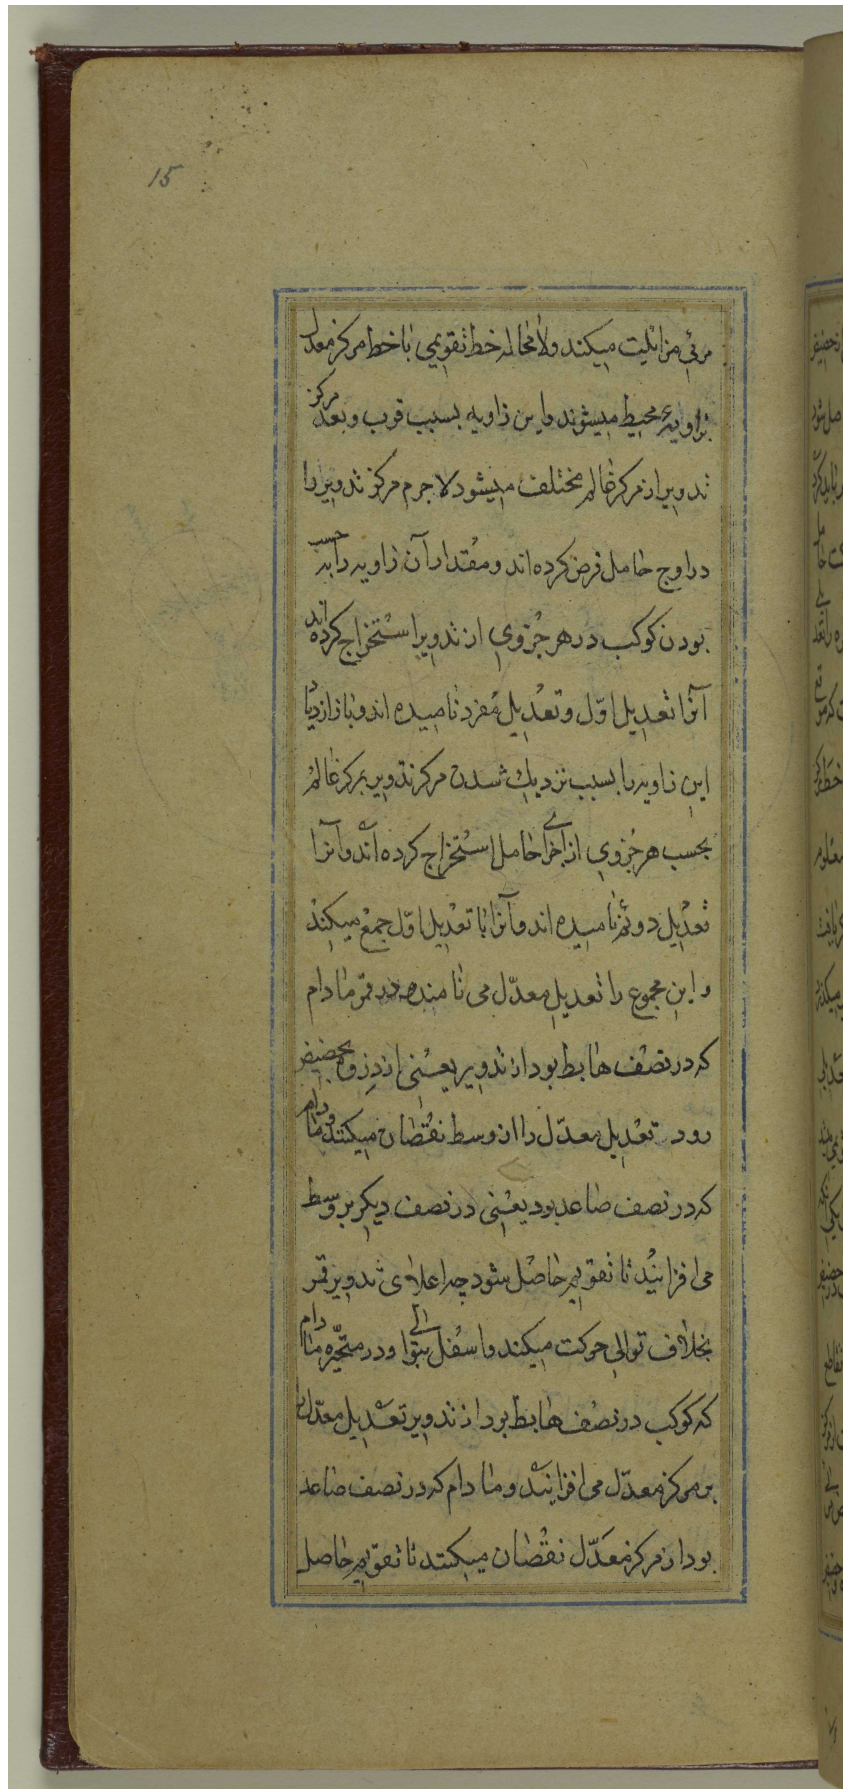 15
مرئی مزایلت میکند ولامحاله خط تقویمی با خط مرکز معدل
بزاویهٔ محیط میشوند واین زاویه بسبب قرب وبعد مرکز
تدویر از مرکز عالم مختلف میشود لاجرم مرکز تدویر را
در اوج حامل فرض کرده اند ومقدار آن زاویه را بحسب
بودن کوکب در هر جزوی از تدویر استخراج کرده اند
آنرا تعدیل اوّل وتعدیل مفرد نامیده اند وباز ازدیاد
این زاویه را بسبب نزدیك شدن مرکز تدویر بمرکز عالم
بحسب هر جزوی از اجزای حامل استخراج کرده اند وآنرا
تعدیل دوئم نامیده اند وآنرا با تعدیل اوّل جمع میکنند
واین مجموع را تعدیل معدّل می نامند ودر قمر مادام
که در نصف هابط بود از تدویر یعنی از ذروه بحضیض
رود تعدیل معدّل را از وسط نقصان میکنند ومادام
که در نصف صاعد بود یعنی در نصف دیکر بر وسط
می افزایند تا تقویم حاصل شود چه اعلاوی تدویر قمر
بخلاف توالی حرکت میکند واسفل بتوالی ودر متحیّره مادام
که کوکب در نصف هابط بود از تدویر تعدیل معدّل را
بر مرکز معدّل می افزایند ومادام که در نصف صاعد
بود از مرکز معدّل نقصان میکنند تا تقویم حاصل